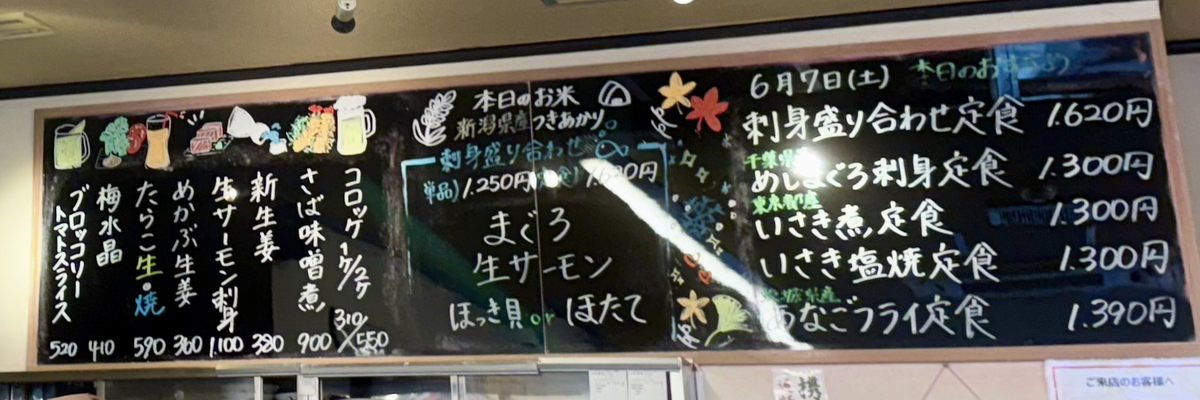 コロッケ 1ケ/2ケ 310/550
さば味噌煮 900
新生姜 380
生サーモン刺身 1.100
めかぶ生姜 360
たらこ生・焼 590
梅水晶 410
ブロッコリー
トマトスライス 520
本日のお米
新潟県産つきあかり
刺身盛り合わせ
単品) 1.250円 定食) 1.620円
まぐろ
生サーモン
ほっき貝 or ほたて
6月7日(土) 本日のおすすめ
刺身盛り合わせ定食 1.620円
千葉県
めじまぐろ刺身定食 1.300円
東京都産
いさき煮定食 1.300円
いさき塩焼定食 1.300円
県産
あなごフライ定食 1.390円
ご来店のお客様へ